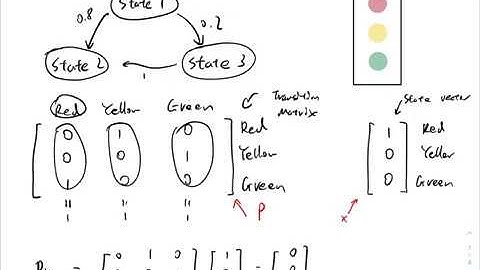 State 1
0.8
0.2
State 2
State 3
1
Red Yellow Green
Transition
Matrix
State vector
0 1 0 Red
0 0 1 Yellow
1 0 0 Green
1 Red
0 Yellow
0 Green
P
x
1 1 1
0 1 0 1 0